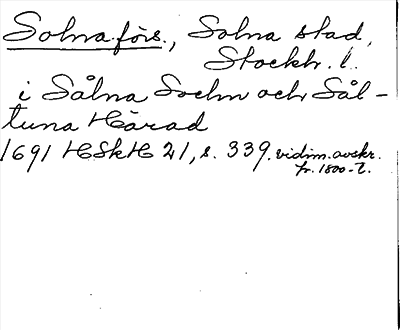 Solna förs., Solna stad,
Stockh. l.
i Sålna Sochn och Sål-
tuna Härad
1691 HSkH 21, s. 339. vidim. avskr.
fr. 1800-t.